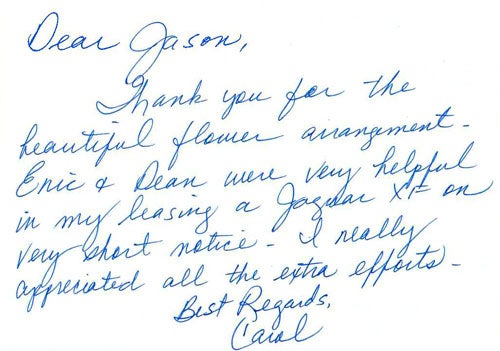 Dear Jason,
Thank you for the
beautiful flower arrangement.
Eric & Dean were very helpful
in my leasing a Jaguar XF on
very short notice. I really
appreciated all the extra efforts.
Best Regards,
Carol